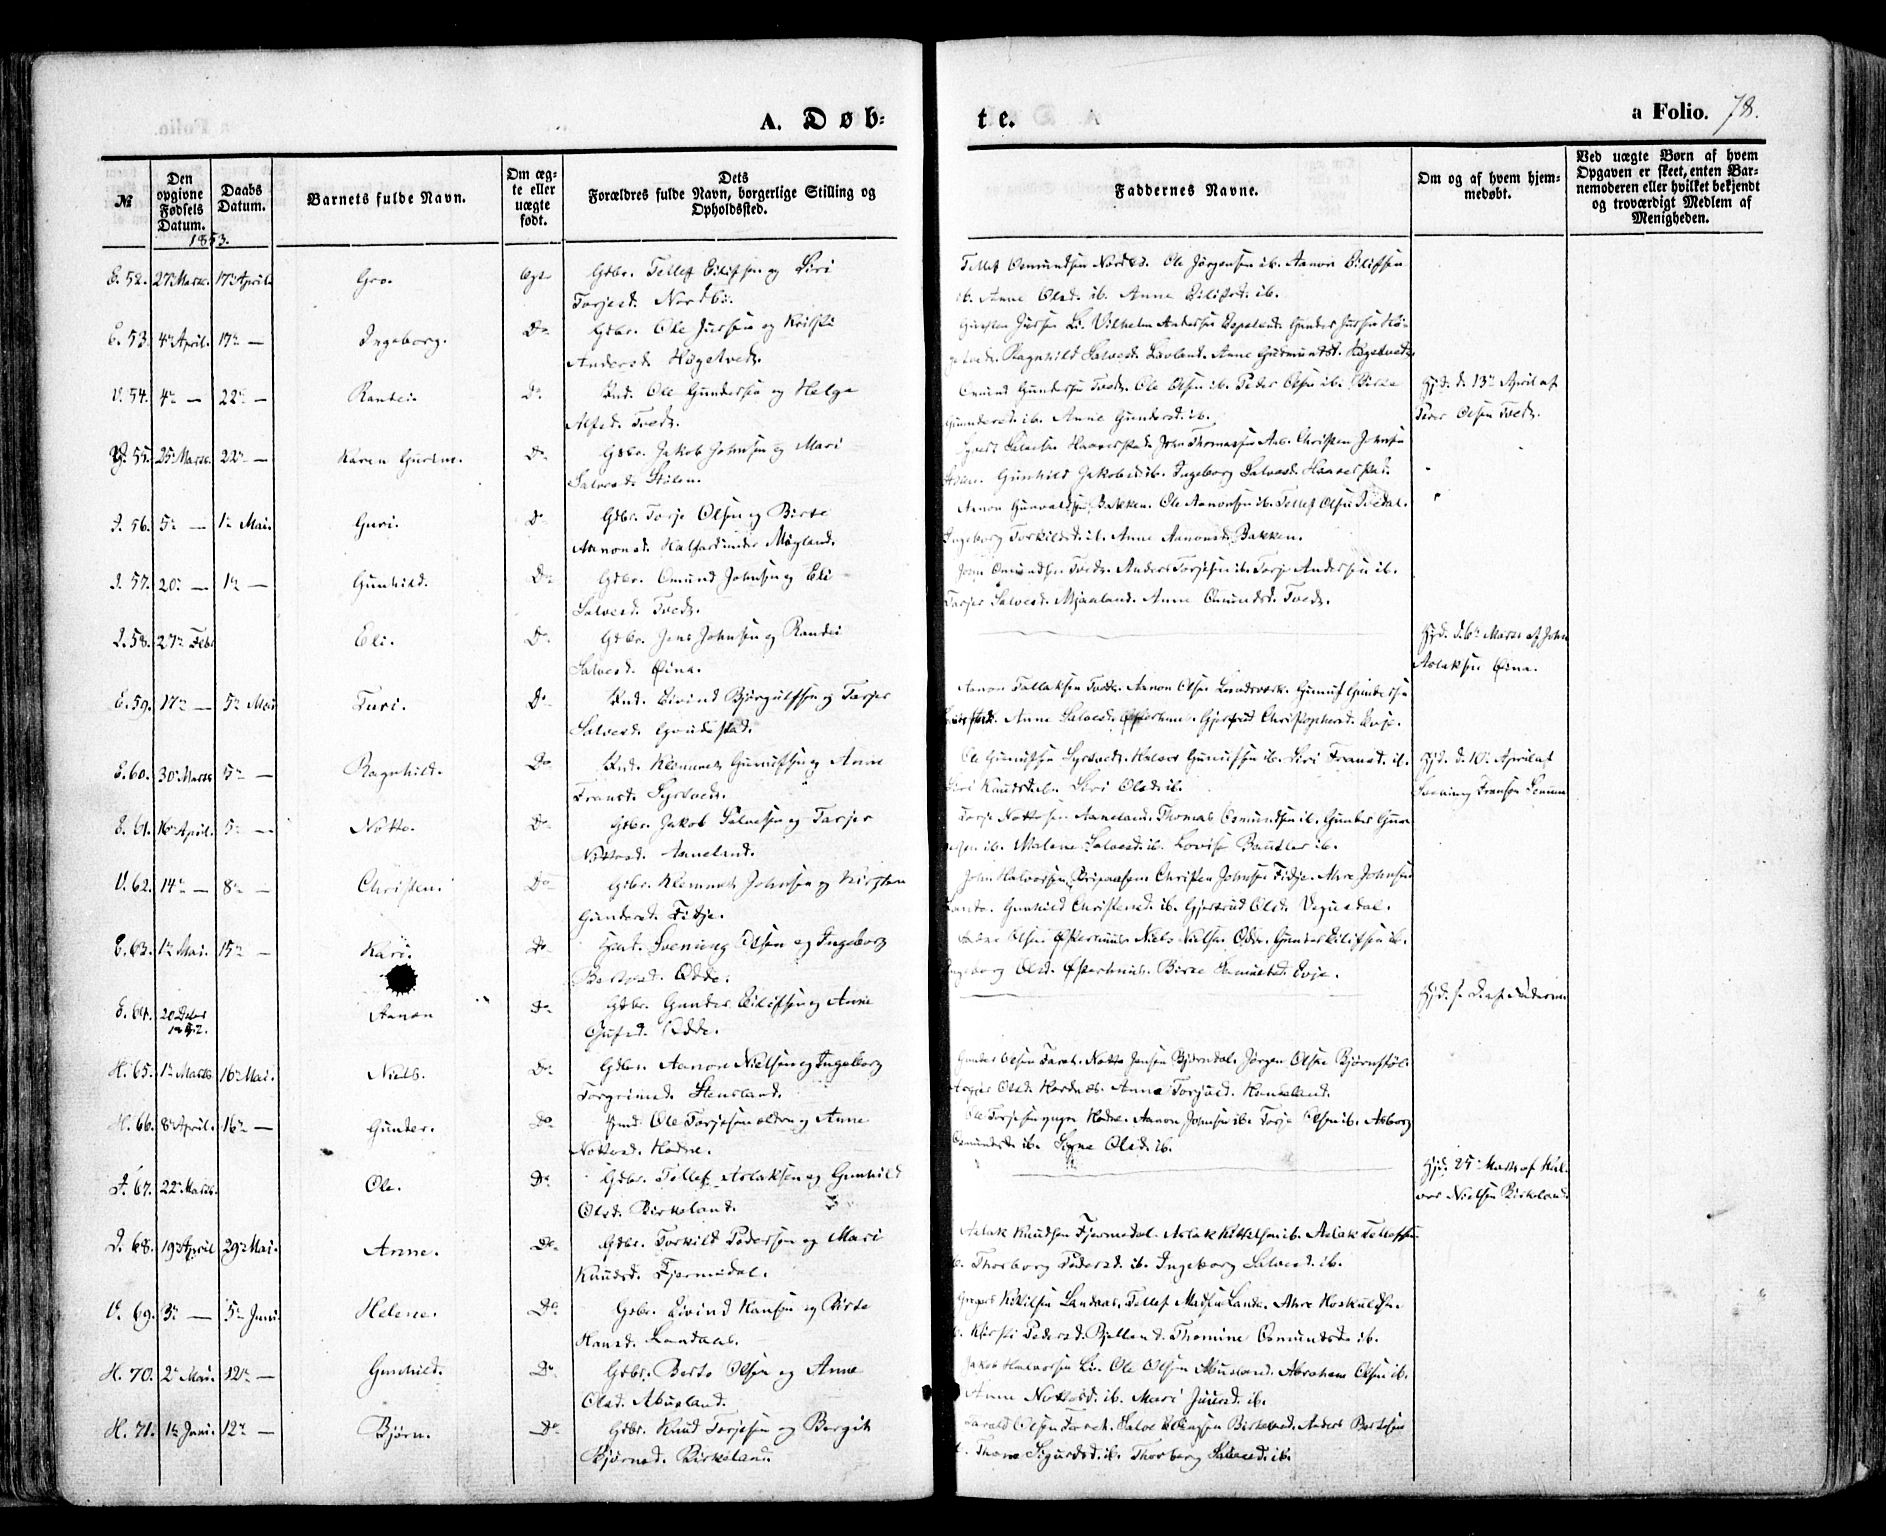 A. Døb-
te.
a Folio. 78.
№
Den opgivne Fødsels Datum.
Daabs Datum.
Barnets fulde Navn.
Om ægte eller uægte født.
Dets Forældres fulde Navn, borgerlige Stilling og Opholdssted.
Faddernes Navne.
Om og af hvem hjemmedøbt.
Ved uægte Børn af hvem Opgaven er skeet, enten Barnemoderen eller hvilket bekjendt og troværdigt Medlem af Menigheden.
1853.
E. 52. 27de Marts. 17de April. Gro. Egte Gdbr. Tellef Eilifsen og Siri
Torjesd. Nordbø.
Tellef Osmundsen Nordbø. Ole Jørgensen ib. Aanon Eilifsen
ib. Anne Olsd. ib. Anne Eilifsd. ib.
E. 53. 4de April. 17de — Ingeborg. Do Gdbr. Ole Jursen og Kristi
Andersd. Høgetvedt.
Jursen Li. Vilhelm Andersen Espeland. Gunder Jursen Hø-
getvedt. Ragnhild Salvesd. Lavland. Anne Gudmundsd. Høgetvedt.
V. 54. 4de — 22de — Randei. Do Ind. Ole Gundersen og Helge
Alfsd. Tvedt.
Omund Gundersen Tvedt. Ole Olsen ib. Peder Olsen ib.
Gundersd. ib. Anne Gundersd. ib.
Hjd. d. 13de April af
Peder Olsen Tvedt.
V. 55. 25de Marts. 22de — Karen Gurine. Do Gdbr. Jakob Johnsen og Mari
Salvesd. Stilen.
Haaverstad. John Thomassen Aas. Christen Johnsen
Gunhild Jakobsd. ib. Ingeborg Salvesd. Haaverstad.
I. 56. 5te — 1te Mai. Guri. Do Gdbr. Torje Olsen og Birte
Aanonsd. Halfard under Mogland.
Aanon Gunvaldsen Bakken. Ole Aanonsen ib. Tellef Olsen Ivedal.
Ingeborg Torkildsd. ib. Anne Aanonsd. Bakken.
I. 57. 20de — 1te — Gunhild. Do Gdbr. Omund Johnsen og Eli
Salvesd. Tvedt.
John Omundsen Tvedt. Anders Torjesen ib. Torje Andersen ib.
Tarjer Salvesd. Mjaaland. Anne Omundsd. Tvedt.
I. 58. 27de Febr. Eli. Do Gdbr. Jens Johnsen og Randei
Salvesd. Øina.
Hjd. d. 6te Marts af John
Aslaksen Øina.
E. 59. 17de — 5te Mai Turi. Do Ind. Eivind Bjorgulfsen og Tarjer
Salvesd. Gautestad.
Aanon Tallaksen Tvedt. Aanon Olsen Landsverk. Gunuf Gundersen
Anne Salvesd. Østerhus. Gjertrud Christophersd. Evje.
E. 60. 30te Marts 5te — Ragnhild. Do Ind. Klemmet Gunufsen og Anne
Fransd. Syrtvedt.
Ole Gunufsen Syrtvedt. Halvor Gunufsen ib. Siri Fransd. ib.
Siri Knudsd. ib. Siri Olsd. ib.
Hjd. d. 10de April af
Sveinung Fransen Senum
E. 61. 16de April. 5te — Notto. Do Gdbr. Jakob Salvesen og Tarjer
Nottosd. Aaneland.
Torje Nottosen Aaneland. Thomas Osmundsen ib. Gunder Gun-
dersen ib. Malene Salvesd. ib. Lovise ib.
V. 62. 14de — 8de — Christen. Do Gdbr. Klemmet Johnsen og Kirsten
Gundersd. Fidje.
John Halvorsen Christen Johnsen Fidje. Ahre Johnsen
Lande. Gunhild Christensd. ib. Gjertrud Olsd. Vegusdal.
E. 63. 1te Mai. 15de — Kari. Do Svenung Olsen og Ingeborg
Bertesd. Odde.
Olsen Østerhus. Niels Nielsen Odde. Gunder Eilifsen ib.
Ingeborg Olsd. Østerhus. Birte Evje.
E. 64. 20 Decbr 1852. Aanon Do Gdbr. Gunder Eilifsen og Anne
Odde.
Hjd. s. D. af Faderen
H. 65. 1te Marts 16de Mai. Niels. Do Gdbr. Aanon Nielsen og Ingeborg
Torgrimsd. Hensland.
Gunder Olsen Notto Jensen Bjorndal. Jørgen Olsen Bjørnstøl.
Olsd. Hodnes. Anne Torjusd. Henseland.
H. 66. 8de April. 16de — Gunder. Do Ind. Ole Torjesen ældre og Anne
Nottosd. Hodne.
Ole Torjesen yngre Hodne. Aanon Johnsen ib. Torje Olsen ib. Asborg
Osmundsd. ib. Signe Olsd. ib.
I. 67. 22de Marts. Ole. Do Gdbr. Tellef Aslaksen og Gunhild
Olsd. Birkeland.
Hjd. 25de Marts af Hal-
vor Nielsen Birkeland.
I. 68. 19de April 29de Mai. Anne. Do Gdbr. Torkild Pedersen og Mari
Knudsd. Fjermedal.
Aslak Knudsen Fjermedal. Aslak Kittelsen ib. Aslak Tellefsen
ib. Thorborg Pedersd. ib. Ingeborg Salvesd. ib.
V. 69. 3de — 5te Juni. Helene. Do Gdbr. Eivind Hansen og Birte
Hansd. Landaas.
Kittilsen Landaas. Tellef Madsen Lande. Ahre Hoskuldsen
ib. Kirsti Pedersd. Bjelland. Thomine Osmundsd. ib.
H. 70. 2de Mai. 12te — Gunhild. Do Gdbr. Berte Olsen og Anne
Olsd. Abusland.
Jakob Halvorsen Li. Ole Olsen Abusland. Abraham Olsen ib.
Anne Nottosd. ib. Mari Juursd. ib.
H. 71. 1te Juni. 12te — Bjørn. Do Gdbr. Knud Torjesen og Bergit
Bjørnsd. Birkeland.
Harald Olsen Salve Birkeland. Anders Bertesen
ib. Thone Sigurdsd. ib. Thorborg Salvesd. ib.